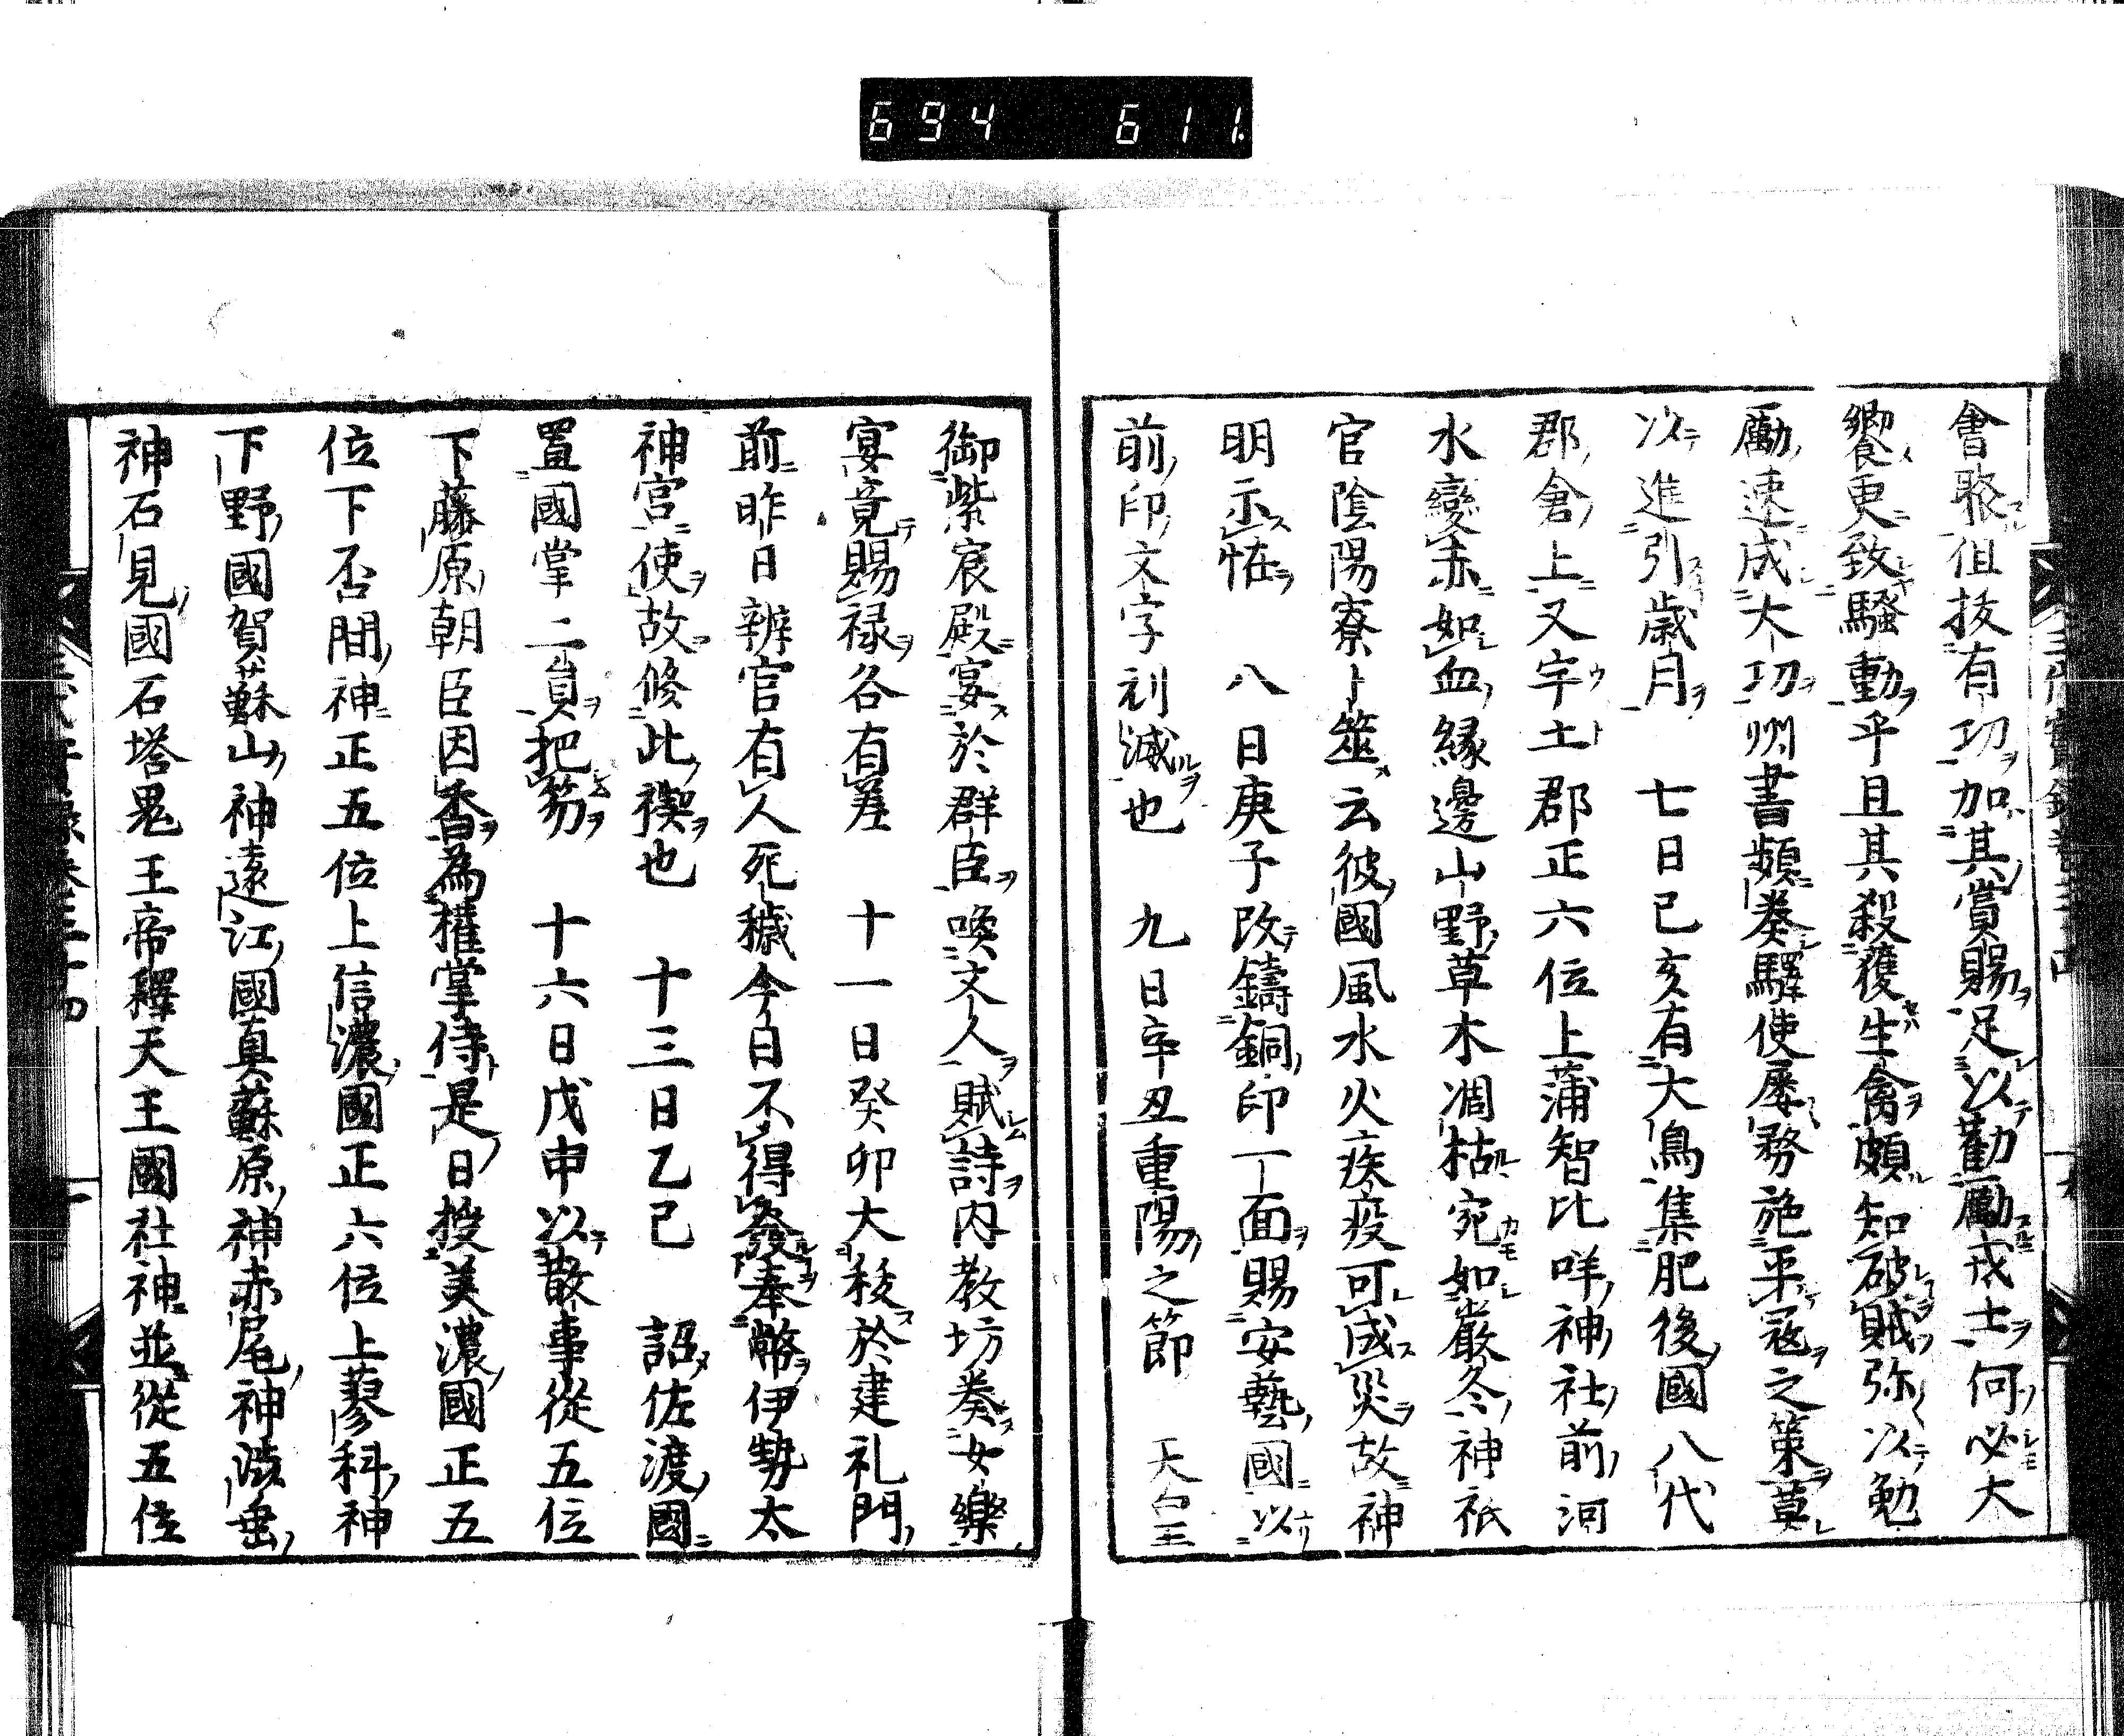 694 611
會聚俎抜有功加其賞賜足以勸勵戎士何必大
饗更致騷動乎且其殺獲生禽頗知破賊弥以勉
勵速成大功州書頻奏驛使屡務施平寇之策莫
以進引歳月　七日己亥有大鳥集肥後國八代
郡倉上又宇土郡正六位上蒲智比咩神社前河
水變赤如血縁邊山野草木凋枯宛如嚴冬神祇
官陰陽寮卜筮云彼國風水火疾疫可成災故神
明示恠　八日庚子改鑄銅印一面賜安藝國以
前印文字刓滅也　九日辛丑重陽之節　天皇
御紫宸殿宴於群臣喚文人賦詩内教坊奏女樂
宴竟賜禄各有差　十一日癸卯大秡於建礼門
前昨日辨官有人死穢今日不得發奉幣伊勢太
神宮使故修此禊也　十三日乙巳　詔佐渡國
置國掌二員把笏　十六日戊申以散事從五位
下藤原朝臣因香為權掌侍是日授美濃國正五
位下否間神正五位上信濃國正六位上蓼科神
下野國賀蘓山神遠江國真蘇原神赤尾神澁垂
神石見國石塔鬼王帝釋天王國社神並從五位